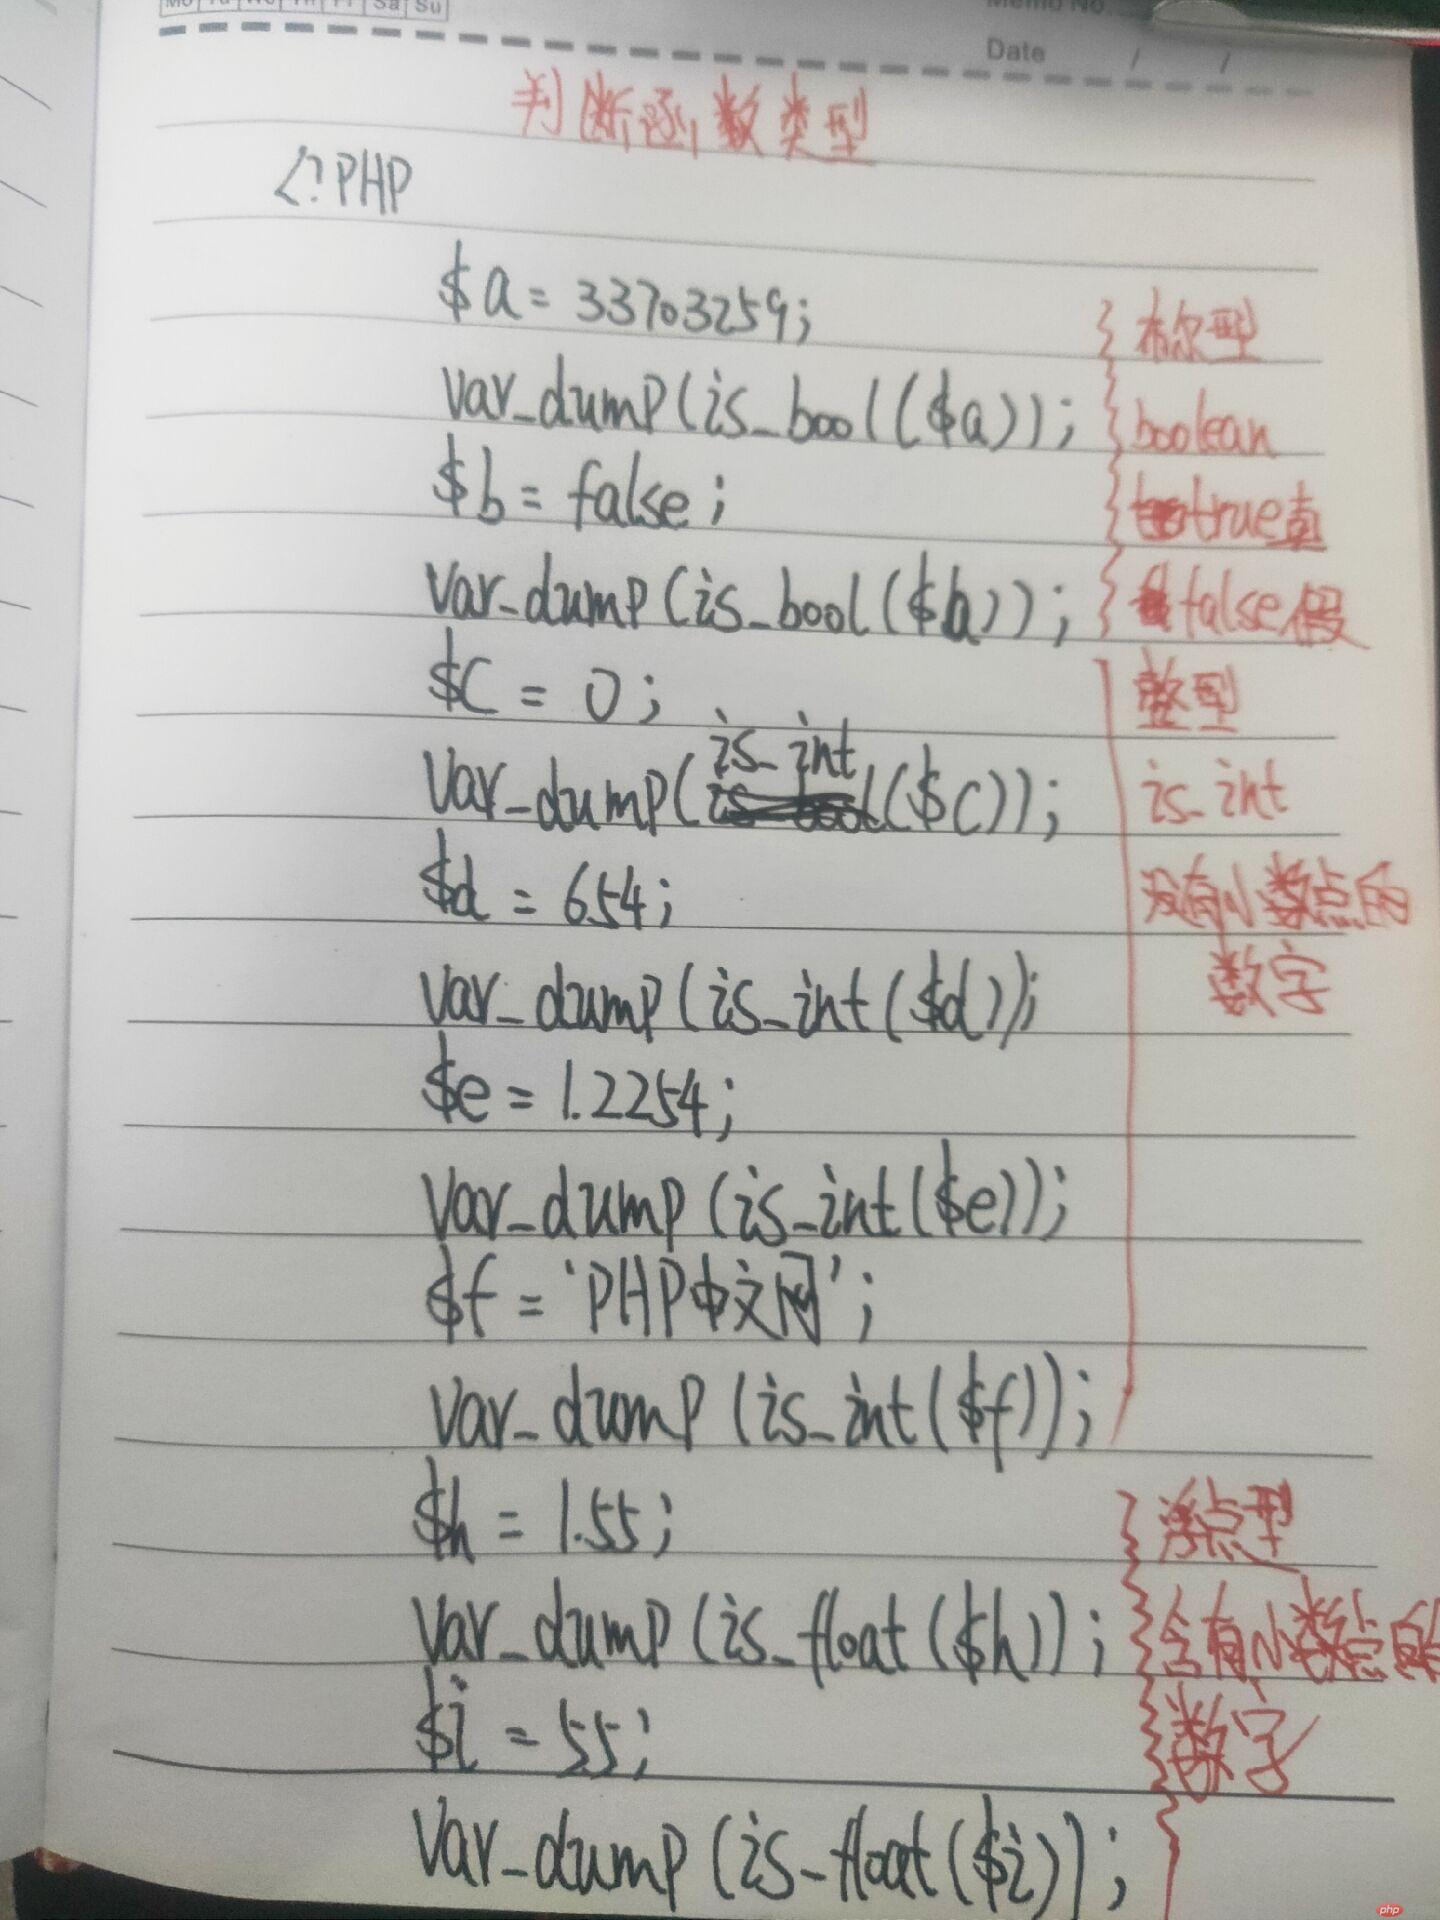 Mo Tu We Th Fr Sa Su
Memo No
Date / /
判断函数类型
<?PHP
$a = 33703259;
布尔型
var_dump(is_bool($a));
boolean
$b = false;
true真
var_dump(is_bool($b));
false假
$c = 0;
整型
is_int
var_dump(is_bool($c));
is_int
$d = 654;
没有小数点的
var_dump(is_int($d));
数字
$e = 1.2254;
var_dump(is_int($e));
$f = 'PHP中文网';
var_dump(is_int($f));
$h = 1.55;
浮点型
var_dump(is_float($h));
含有小数点的
$i = 55;
数字
var_dump(is_float($i));
php